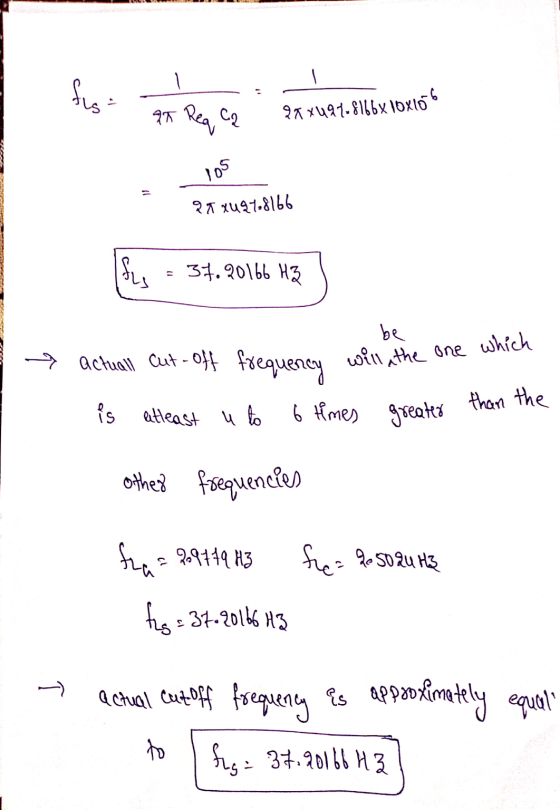 f_LS = 1 / (2π Req C2) = 1 / (2π × 427.8166 × 10×10^-6)
= 10^5 / (2π × 427.8166)
f_LS = 37.20166 Hz
→ actuall cut-off frequency will be the one which
is atleast 4 to 6 times greater than the
other frequencies
f_LG = 2.9779 Hz f_LC = 2.5024 Hz
f_LS = 37.20166 Hz
→ actual cutoff frequency is approximately equal
to f_LS = 37.20166 Hz